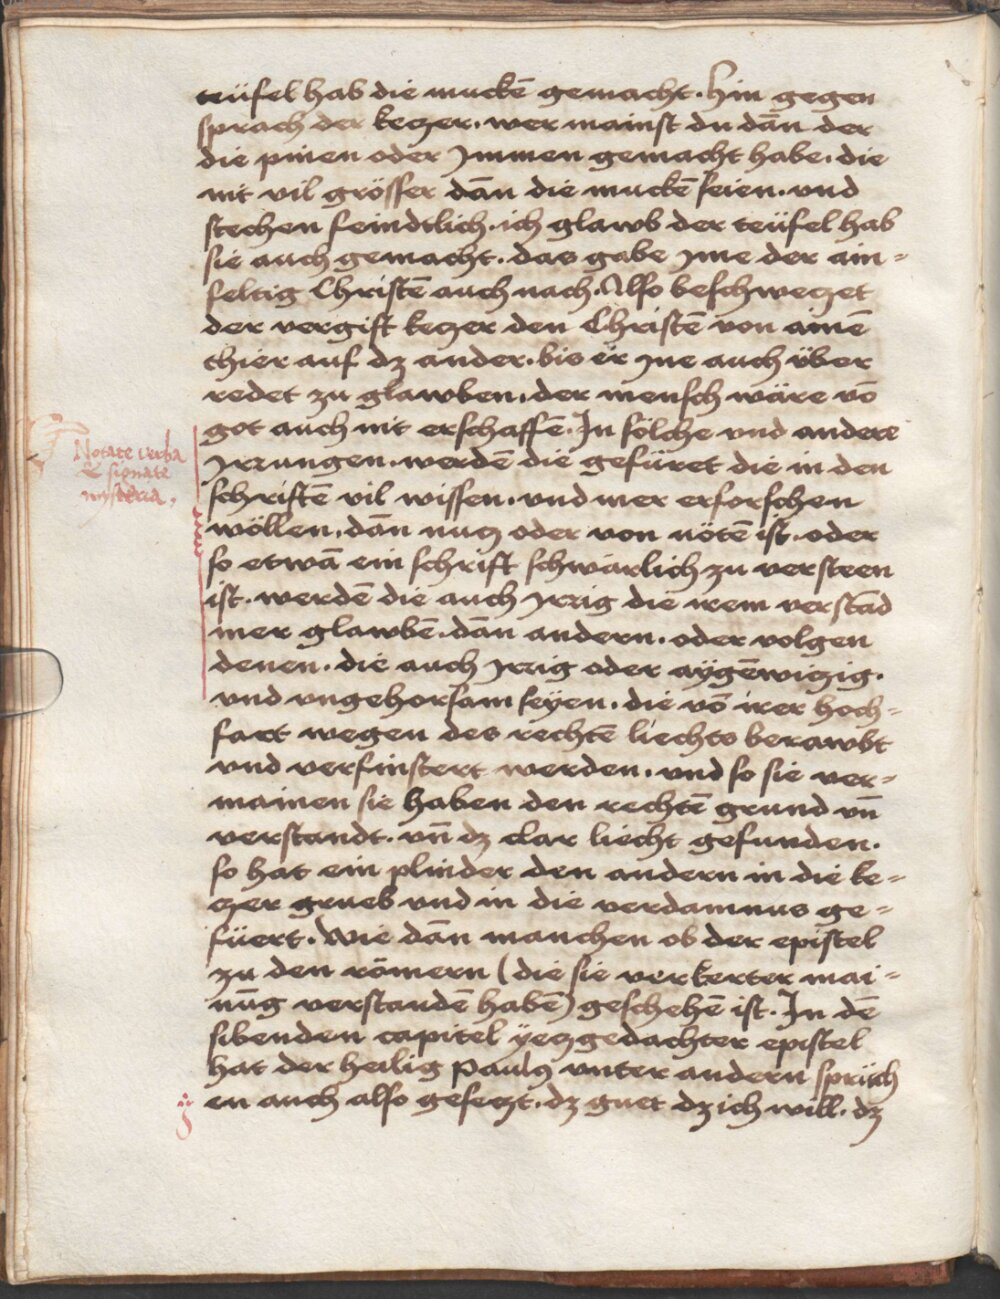 teüfel hab die muckē gemacht. hin gegen
sprach der keczer. wer mainst du dān der
die pinen oder Immen gemacht habe. die
nit vil grösser dān die muckē seien. vnd
stechen feindtlich. ich glawb der teüfel hab
sie auch gemacht. das gabe Ime der ain=
feltig Christē auch nach. Also beschweczet
der vergift keczer den Christē von ainē
thier auf dz ander. bis er Ine auch über
redet zu glawben. der mensch wäre vō
got auch nit erschaffē. In sölche vnd andere
Irrungen. werdē die gefüret die in den
schriftē vil wissen. vnd mer erforschen
wöllen. dān nucz oder von nötē ist. oder
so etwā ein schrift schwärlich zu versteen
ist. werdē die auch Irrig die irem verstād
mer glawbē. dān andern. oder volgen
denen. die auch Irrig oder aygēwiczig.
vnd vngehorsam seyen. die vō irer hoch=
fart wegen des rechtē liechts berawbt
vnd verfinstert werden. vnd so sie ver=
mainen sie haben den rechtē grund vn̄
verstandt. vn̄ dz clar liecht gefunden.
so hat ein plinder den andern in die ke=
czer grueb vnd in die verdamnus ge=
füert. Wie dān manchen ob der epistel
zu den römern (die sie verkerter mai=
nūg verstandē habē) geschehē ist. In dē
sibenden capitel yeczgedachter epistel
hat der heilig Paulꝰ vnter andern sprüch
en auch also gesetzt. dz guet dz ich will. dz
Notate verba
& signate
mysteria.